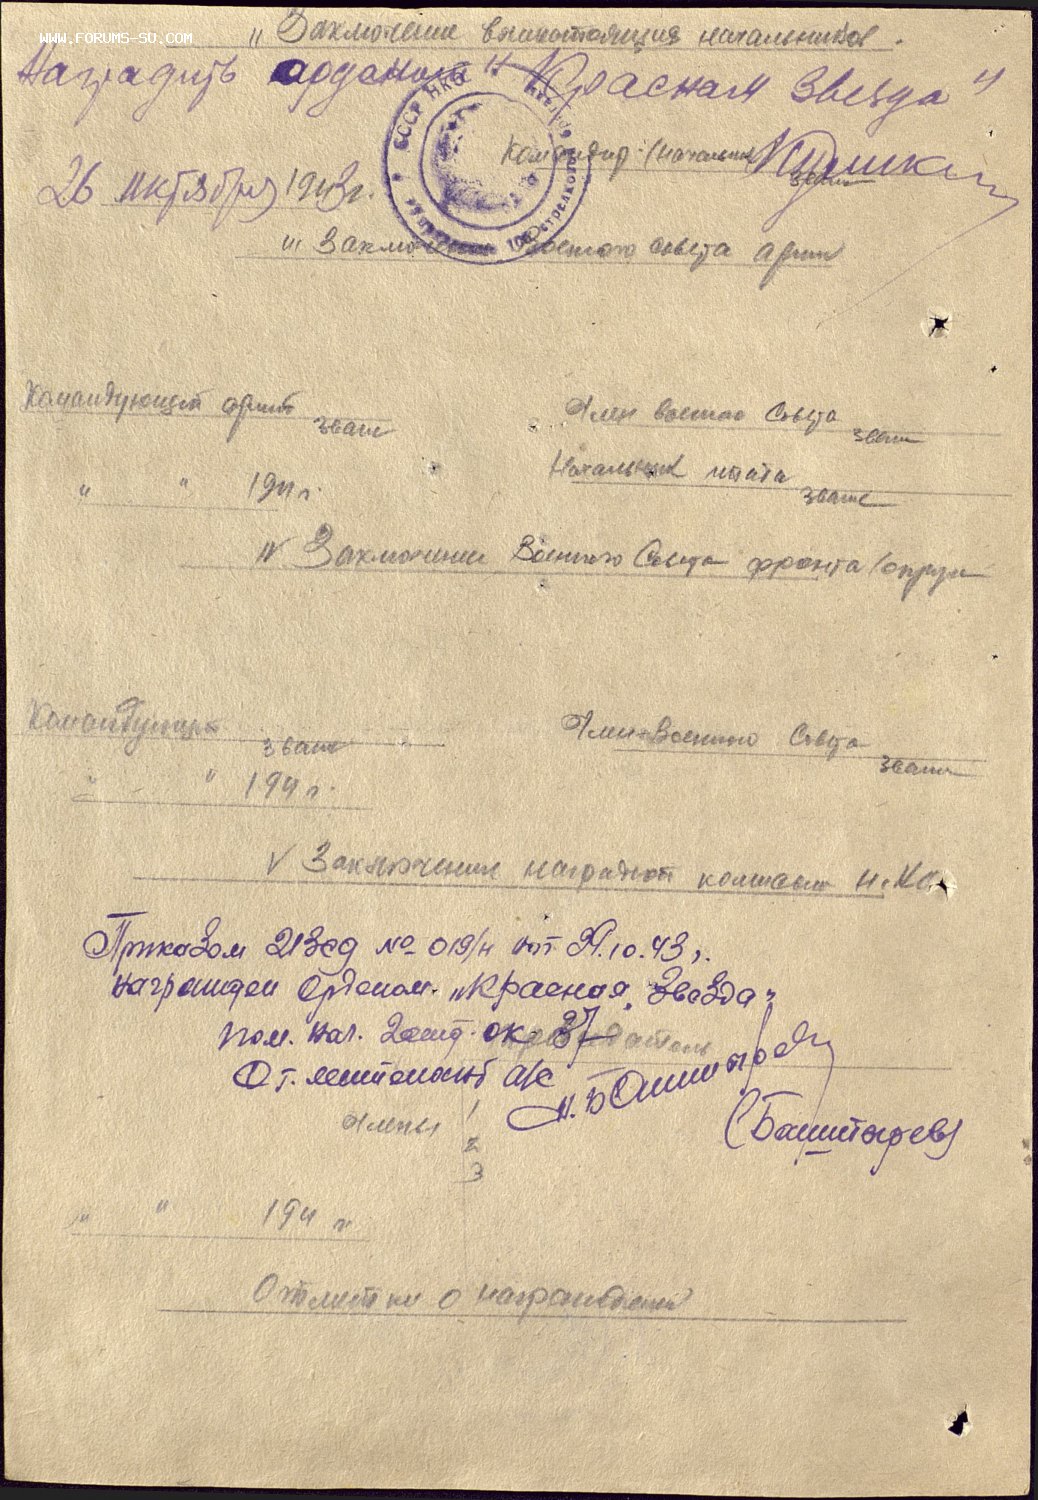 WWW.FORUMS-SU.COM
II Заключение вышестоящих начальников.
Наградить орденом "Красная Звезда"
Командир (начальник)
звание
26 октября 1943 г.
СССР НКО
III Заключение военного совета армии
Командующий армией
звание
Член военного Совета
звание
" " 194 г.
Начальник штаба
звание
IV Заключение Военного Совета фронта /округа
Командующий
звание
Член Военного Совета
звание
" " 194 г.
V Заключение наградной комиссии Н.КО
Приказом 213сд № 019/н от 31.10.43 г.
награжден Орденом "Красная Звезда"
пом. нач. 2 отд.
Председатель
Ст. лейтенант а/с
(Башитарев)
Члены 1
2
3
" " 194 г.
Отметки о награждении